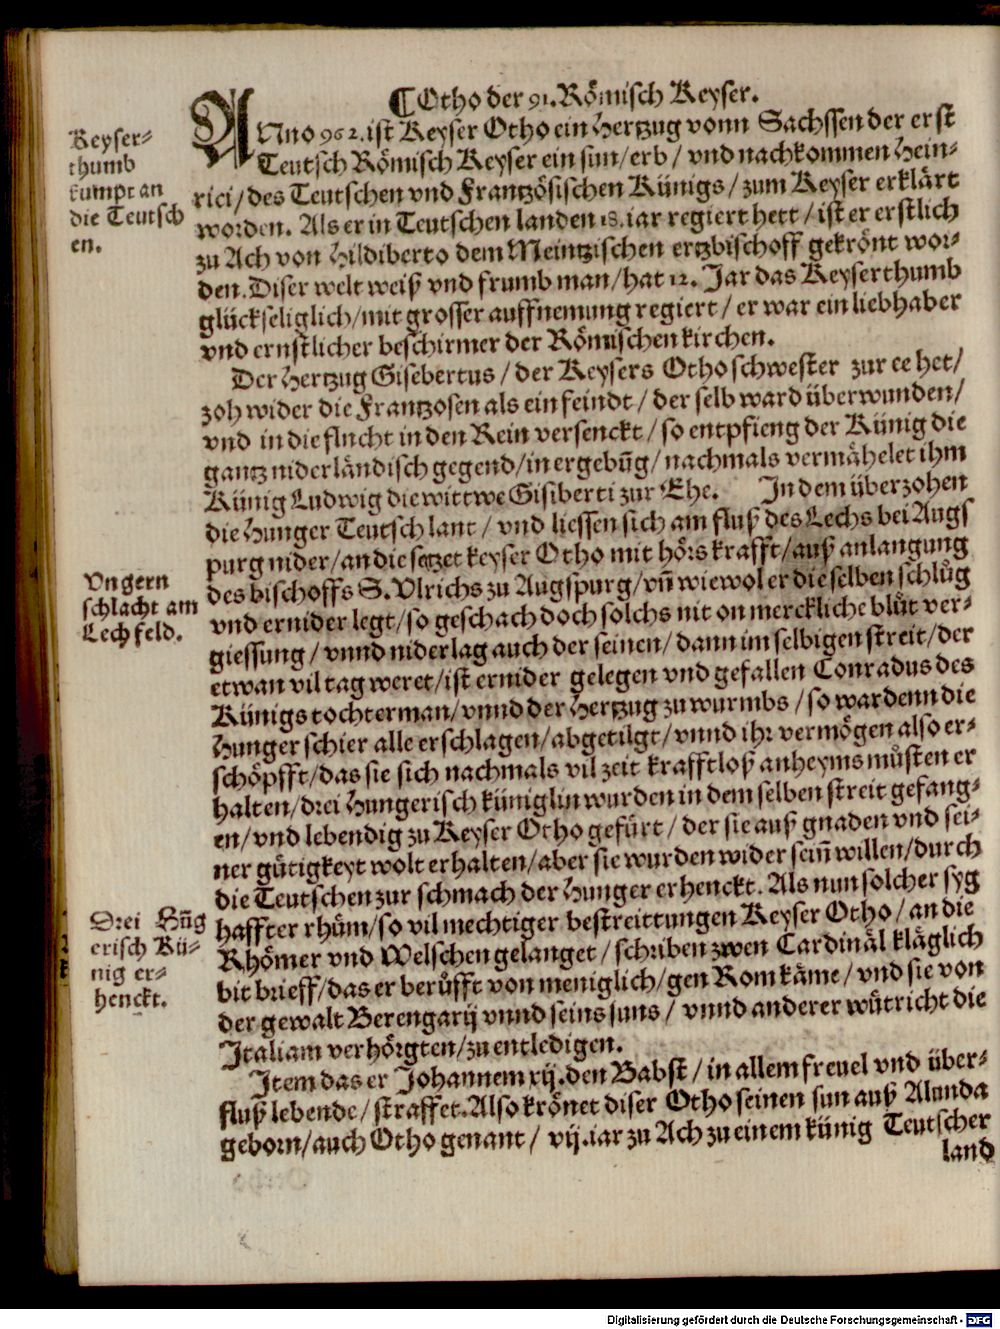 ¶Otho der 91. Römisch Keyser.
Keyser-
thumb
kumpt an
die Teutsch
en.
ANno 962. ist Keyser Otho ein Hertzug vonn Sachssen der erst
Teutsch Römisch Keyser ein sun/erb/ vnd nachkommen Hein-
rici/des Teutschen vnd Frantzösischen Künigs/zum Keyser erklärt
worden. Als er in Teutschen landen 18. iar regiert hett/ist er erstlich
zu Ach von Hildiberto dem Meintzischen ertzbischoff gekrönt wor-
den. Diser welt weiß vnd frumb man/hat 12. Jar das Keyserthumb
glückseliglich/mit grosser auffnemung regiert/er war ein liebhaber
vnd ernstlicher beschirmer der Römischen kirchen.
Der Hertzug Gisebertus/der Keysers Otho schwester zur ee het/
zoh wider die Frantzosen als ein feindt/der selb ward überwunden/
vnd in die flucht in den Rein versenckt/so entpfieng der Künig die
gantz niderländisch gegend/in ergebūg/nachmals vermähelet ihm
Künig Ludwig die wittwe Gisiberti zur Ehe. In dem überzohen
die Hunger Teutsch lant/vnd liessen sich am fluß des Lechs bei Augs
purg nider/an die setzet keyser Otho mit hörs krafft/auß anlangung
Vngern
schlacht am
Lechfeld.
des bischoffs S. Vlrichs zu Augspurg/vn̄ wiewol er die selben schlůg
vnd ernider legt/so geschach doch solchs nit on merckliche blůt ver-
giessung/vnnd niderlag auch der seinen/dann im selbigen streit/der
etwan vil tag weret/ist ernider gelegen vnd gefallen Conradus des
Künigs tochterman/vnnd der Hertzug zu wurmbs/so wardenn die
Hunger schier alle erschlagen/abgetilgt/vnnd ihr vermögen also er-
schöpfft/das sie sich nachmals vil zeit krafftloß anheyms můsten er
halten/drei Hungerisch küniglin wurden in dem selben streit gefang-
en/vnd lebendig zu Keyser Otho gefürt/der sie auß gnaden vnd sei-
ner gůtigkeyt wolt erhalten/aber sie wurden wider sein̄ willen/durch
die Teutschen zur schmach der Hunger erhenckt. Als nun solcher syg
Drei Hūg
erisch Kü-
nig er-
henckt.
haffter rhům/so vil mechtiger bestreittungen Keyser Otho/an die
Rhömer vnd Welschen gelanget/schriben zwen Cardinäl kläglich
bit brieff/das er berůfft von meniglich/gen Rom käme/vnd sie von
der gewalt Berengarij vnnd seins suns/vnnd anderer wůtricht die
Italiam verhörgten/zu entledigen.
Item das er Johannem xij. den Babst/in allem freuel vnd über-
fluß lebende/straffet. Also krönet diser Otho seinen sun auß Alunda
geborn/auch Otho genant/vij. iar zu Ach zu einem künig Teutscher
land
Digitalisierung gefördert durch die Deutsche Forschungsgemeinschaft - DFG